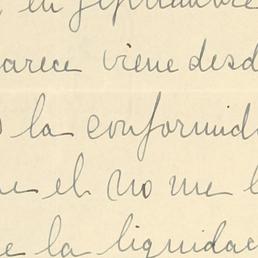 en septiembre
arece viene desd
la conformid
ue el no me l
e la liquidac